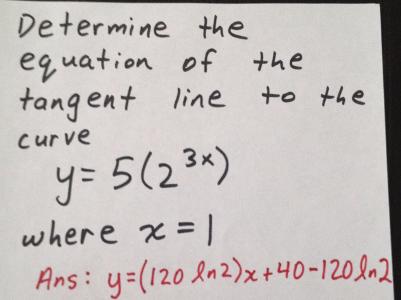 Determine the
equation of the
tangent line to the
curve
y = 5(2^{3x})
where x = 1
Ans: y=(120 ln2)x+40-120ln2